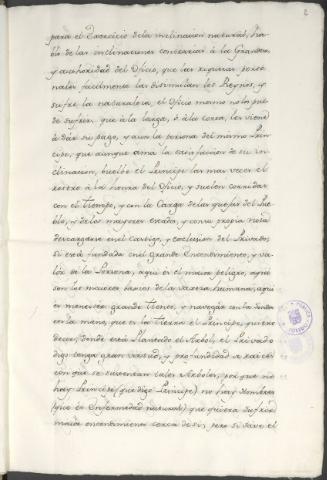 2
para el Exercicio de la inclinacion natural, ha-
blo de las inclinaciones contrarias à la Grandeza,
y authoridad del Oficio, que las xaqueras perso-
nales facilmente las disimulan los Reynos, y
sufre la naturaleza, el Oficio mismo no lo pue
de sufrir, que à la larga, ò à la corta, les viene
à dàr su pago, y aun la persona del mismo Prin-
cipe, que aunque ama la satisfacion de su in-
clinacion, buelbe el Principe las mas veces el
rostro à la honrra del Oficio, y suelen corridas
con el Tiempo, y con la Carga de las quejas del Pue
blo, y de los mayores criados, y con su propia nota
descargarse en el castigo, y exclusion del Privado,
si està fundada en el grande Encantamiento, y va-
lòr de la Persona, aqui es el maior peligro, aqui
son los maiores baxios de la vaxeza humana, aqui
es menester grande tenor, y navegar con la sonda
en la mano, que es la Tierra el Principe, quiero
decir, donde està Plantado el Arbol, el Privado
digo tenga gran virtud, y profundidad de raices
con que se sustentan tales Arboles, por que no
hay Principe (que digo Principe) no hay Hombre
(que es Enfermedad natural) que quiera sufrir
maior entendimiento cerca de sì, pero si save el